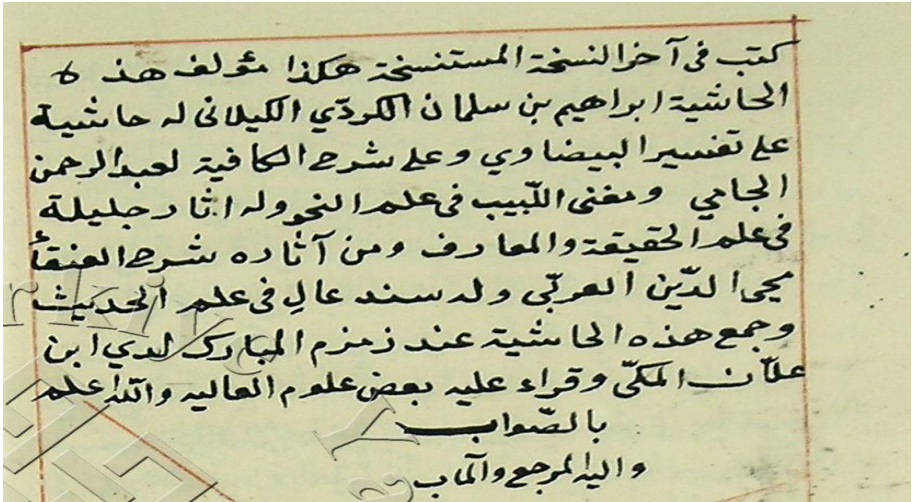 كتب فى آخر النسخة المستنسخة هكذا مؤلف هذه
الحاشية ابراهيم بن سلمان الكردّي الكيلانى له حاشية
على تفسير البيضاوي وعلى شرح الكافية لعبد الرحمن
الجامي ومغنى اللّبيب فى علم النحو وله اثار جليلة
فى علم الحقيقة والمعارف ومن آثاره شرح العنقأ
محيى الدّين العربّى وله سند عالٍ فى علم الحديث
وجمع هذه الحاشية عند زمزم المبارك لدي ابن
علّان المكّى وقراء عليه بعض علوم العاليه والله اعلم
بالصّواب
واليه المرجع والمآب